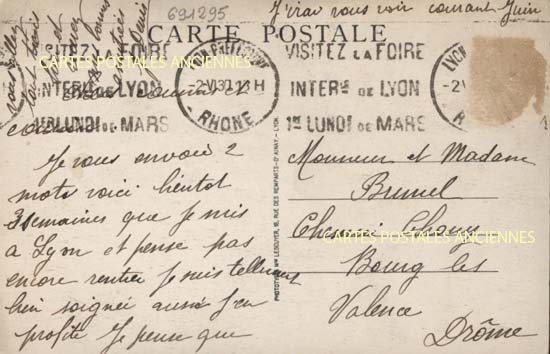 691295
J'irai vous voir courant Juin
CARTE POSTALE
VISITEZ LA FOIRE
INTERLE DE LYON
1ER LUNDI DE MARS
LYON PREFECTURE
-2 VI 37 12 H
RHONE
VISITEZ LA FOIRE
INTERLE DE LYON
1ER LUNDI DE MARS
LYON
-2 V
R
Je vous envoie 2
mots voici bientôt
3 semaines que Je suis
a Lyon et pense pas
encore rentrer Je suis tellement
bien soignée aussi J'en
profite Je pense que
PHOTOTYPIE Mce LESCUYER, 16, RUE DES REMPARTS-D'AINAY - LYON
Monsieur et Madame
Brunel
Bourg les
Valence
Drôme
CARTES POSTALES ANCIENNES
CARTES POSTALES ANCIENNES
CARTES POSTALES ANCIENNES